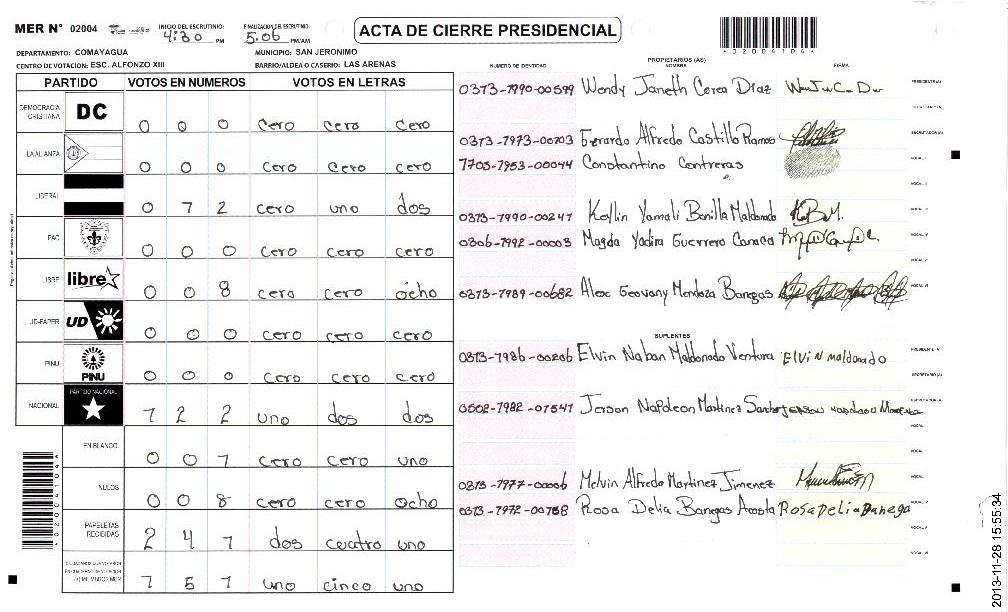 MER N° 02004
INICIO DEL ESCRUTINIO: 4:30 PM
FINALIZACION DEL ESCRUTINIO: 5.06 PM/AM
ACTA DE CIERRE PRESIDENCIAL
DEPARTAMENTO: COMAYAGUA
MUNICIPIO: SAN JERONIMO
CENTRO DE VOTACION: ESC. ALFONZO XIII
BARRIO/ALDEA O CASERIO: LAS ARENAS
PARTIDO VOTOS EN NUMEROS VOTOS EN LETRAS
DEMOCRACIA CRISTIANA DC 0 0 0 cero cero cero
LA ALIANZA 0 0 0 cero cero cero
LIBERAL 0 1 2 cero uno dos
PAC 0 0 0 cero cero cero
LIBRE libre 0 0 8 cero cero ocho
UD-FAPER UD 0 0 0 cero cero cero
PINU PINU 0 0 0 cero cero cero
NACIONAL PARTIDO NACIONAL 1 2 2 uno dos dos
EN BLANCO 0 0 1 cero cero uno
NULOS 0 0 8 cero cero ocho
PAPELETAS RECIBIDAS 2 4 1 dos cuatro uno
1 5 1 uno cinco uno
NUMERO DE IDENTIDAD
PROPIETARIOS (AS)
NOMBRE
FIRMA
0313-1990-00599 Wendy Janeth Corea Diaz
PRESIDENTE (A)
0313-1973-00203 Gerardo Alfredo Castillo Ramos
1703-1953-00044 Constantino Contreras
0313-1990-00241 Keylin Yamali Bonilla Maldonado K.B.M.
0306-1992-00003 Magda Yadira Guerrero Canaca
0313-1989-00682 Alex Geovany Mendoza Banegas
SUPLENTES
0313-1986-00206 Elvin Naban Maldonado Ventura Elvin maldonado
0502-1982-01541 Jerson Napoleon Martinez Sanchez
0313-1977-00006 Melvin Alfredo Martinez Jimenez
0313-1972-00158 Rosa Delia Banegas Acosta Rosa Delia Banega
2013-11-28 15:55:34